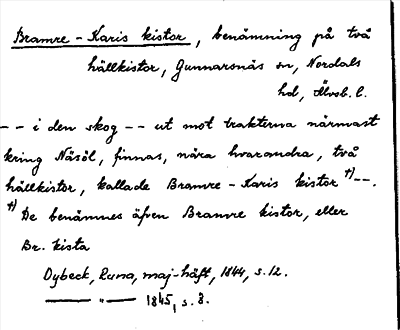 Bramre-Karis kistor, benämning på två
hällkistor, Gunnarsnäs sn, Nordals
hd, Älvsb. l.
-- i den skog -- ut mot trakterna närmast
kring Näsöl, finnas, nära hvarandra, två
hällkistor, kallade Bramre-Karis kistor †)--.
†) De benämnes äfven Bramre kistor, eller
Br. kista
Dybeck, Runa, maj-häft, 1844, s. 12.
—— " —— 1845, s. 8.